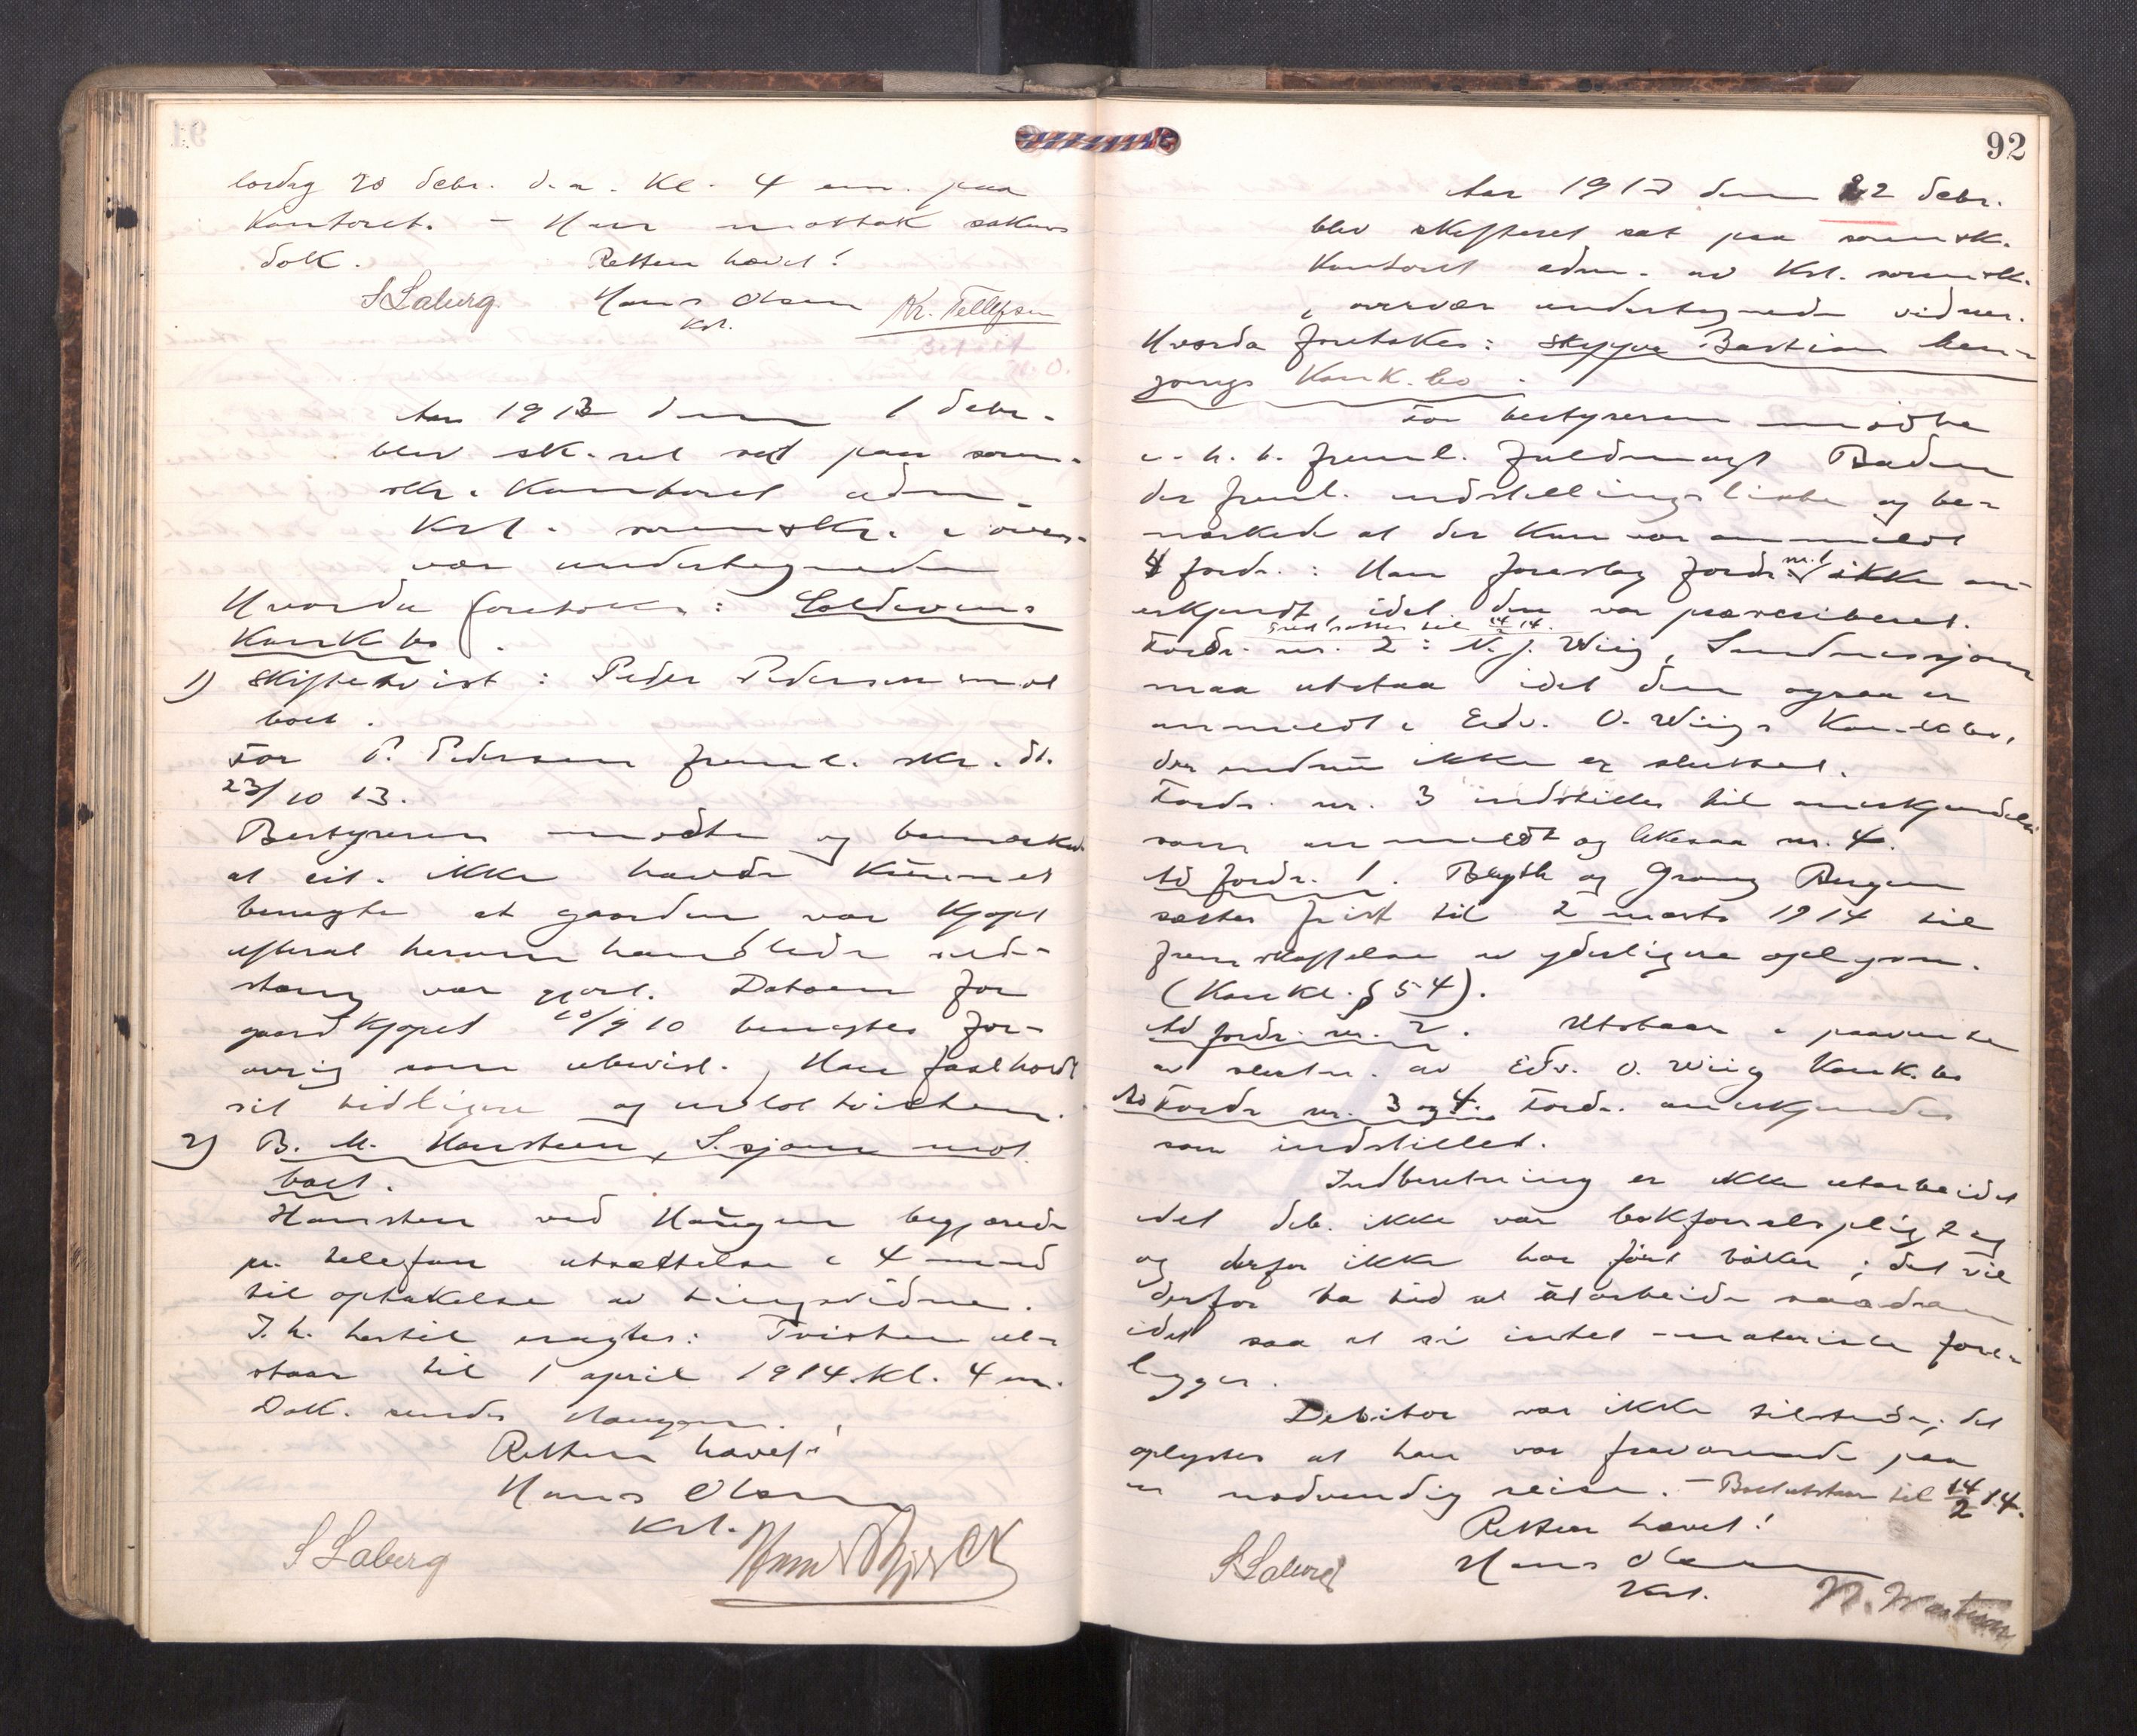 lördag 20 debr. d. a. Kl. 4 em. paa
Kontoret. - Han mottok sakens
dok. Retten hævet!
S Laberg. Hans Olsen Kr. Tellefsen
Kst.
Aar 1913 den 1 debr.
blev sk. ret sat paa soren-
skr. Kontoret adm.
Kst. sorenskr. i över-
vær undertegnede
Hvorda foretokes:
Konk bo.
1) Skiftetvist: Peder Pedersen mot
boet.
For P. Pedersen freml. skr. dt.
23/10 13.
Bestyreren mødte og bemerket
at cit. ikke havde kunnet
benegte at gaarden var kjøpt
efterat herom
var gjort. Datoen for
gaardkjøpet 20/9 10 benegtes for-
øvrig som ubevist. Han fastholdt
sit tidligere og indlot tvisten.
2) B. M. Hansteen, S.sjöen mot
boet.
Hansteen ved Haugen begjærede
pr. telefon utsættelse i 4 mnd
til optakelse av tingsvidne.
I. h. hertil eragtes: Tvisten ut-
staar til 1 april 1914 Kl. 4 em.
Dok. sendes Haugen.
Retten hævet!
Hans Olsen
Kst.
S Laberg
92
Aar 1913 den 22 debr.
blev skifteret sat paa sorensk.
Kontoret adm. av Kst. sorenskr.
i overvær undertegnede vidner.
Hvorda foretokes: Bastian
Konk. bo.
For bestyreren mødte
e. h. b. freml. fuldmagt
der freml. indstillingsliste og be-
merkede at der kun var anmeldt
4 fordr.: Han foreslog fordr. nr. 1 ikke an-
erkjendt, idet den var præscriberet.
14/2 14.
Fordr. nr. 2: N. J. Wiig, Sandnessjøen
maa utstaa idet den ogsaa er
anmeldt i Edv. O. Wiigs Konkbo,
der endnu ikke er sluttet.
Fordr. nr. 3 indstilles til anerkjendelse
som anmeldt og likesaa nr. 4.
Ad fordr. 1. og Bergen
sættes frist til 2 marts 1914 til
fremskaffelse av yderligere oplysn.
(Konkl. § 54).
Ad fordr. nr. 2. Utstaar i paavente
av slutn. av Edv. O. Wiig Konk. bo
Ad Fordr nr. 3 og 4. Fordr. anerkjendes
som indstillet.
Indberetning er ikke utarbeidet
idet deb. ikke var bokforselspligtig
og derfor ikke har ført böker; det vil
derfor ta tid at utarbeide saadan
idet saa at si intet materiale fore-
ligger.
Debitor var ikke tilstede; det
oplystes at han var fraværende paa
en nødvendig reise. - Boet utstaar til 14/2 14.
Retten hævet!
S Laberg Hans Olsen
Kst.